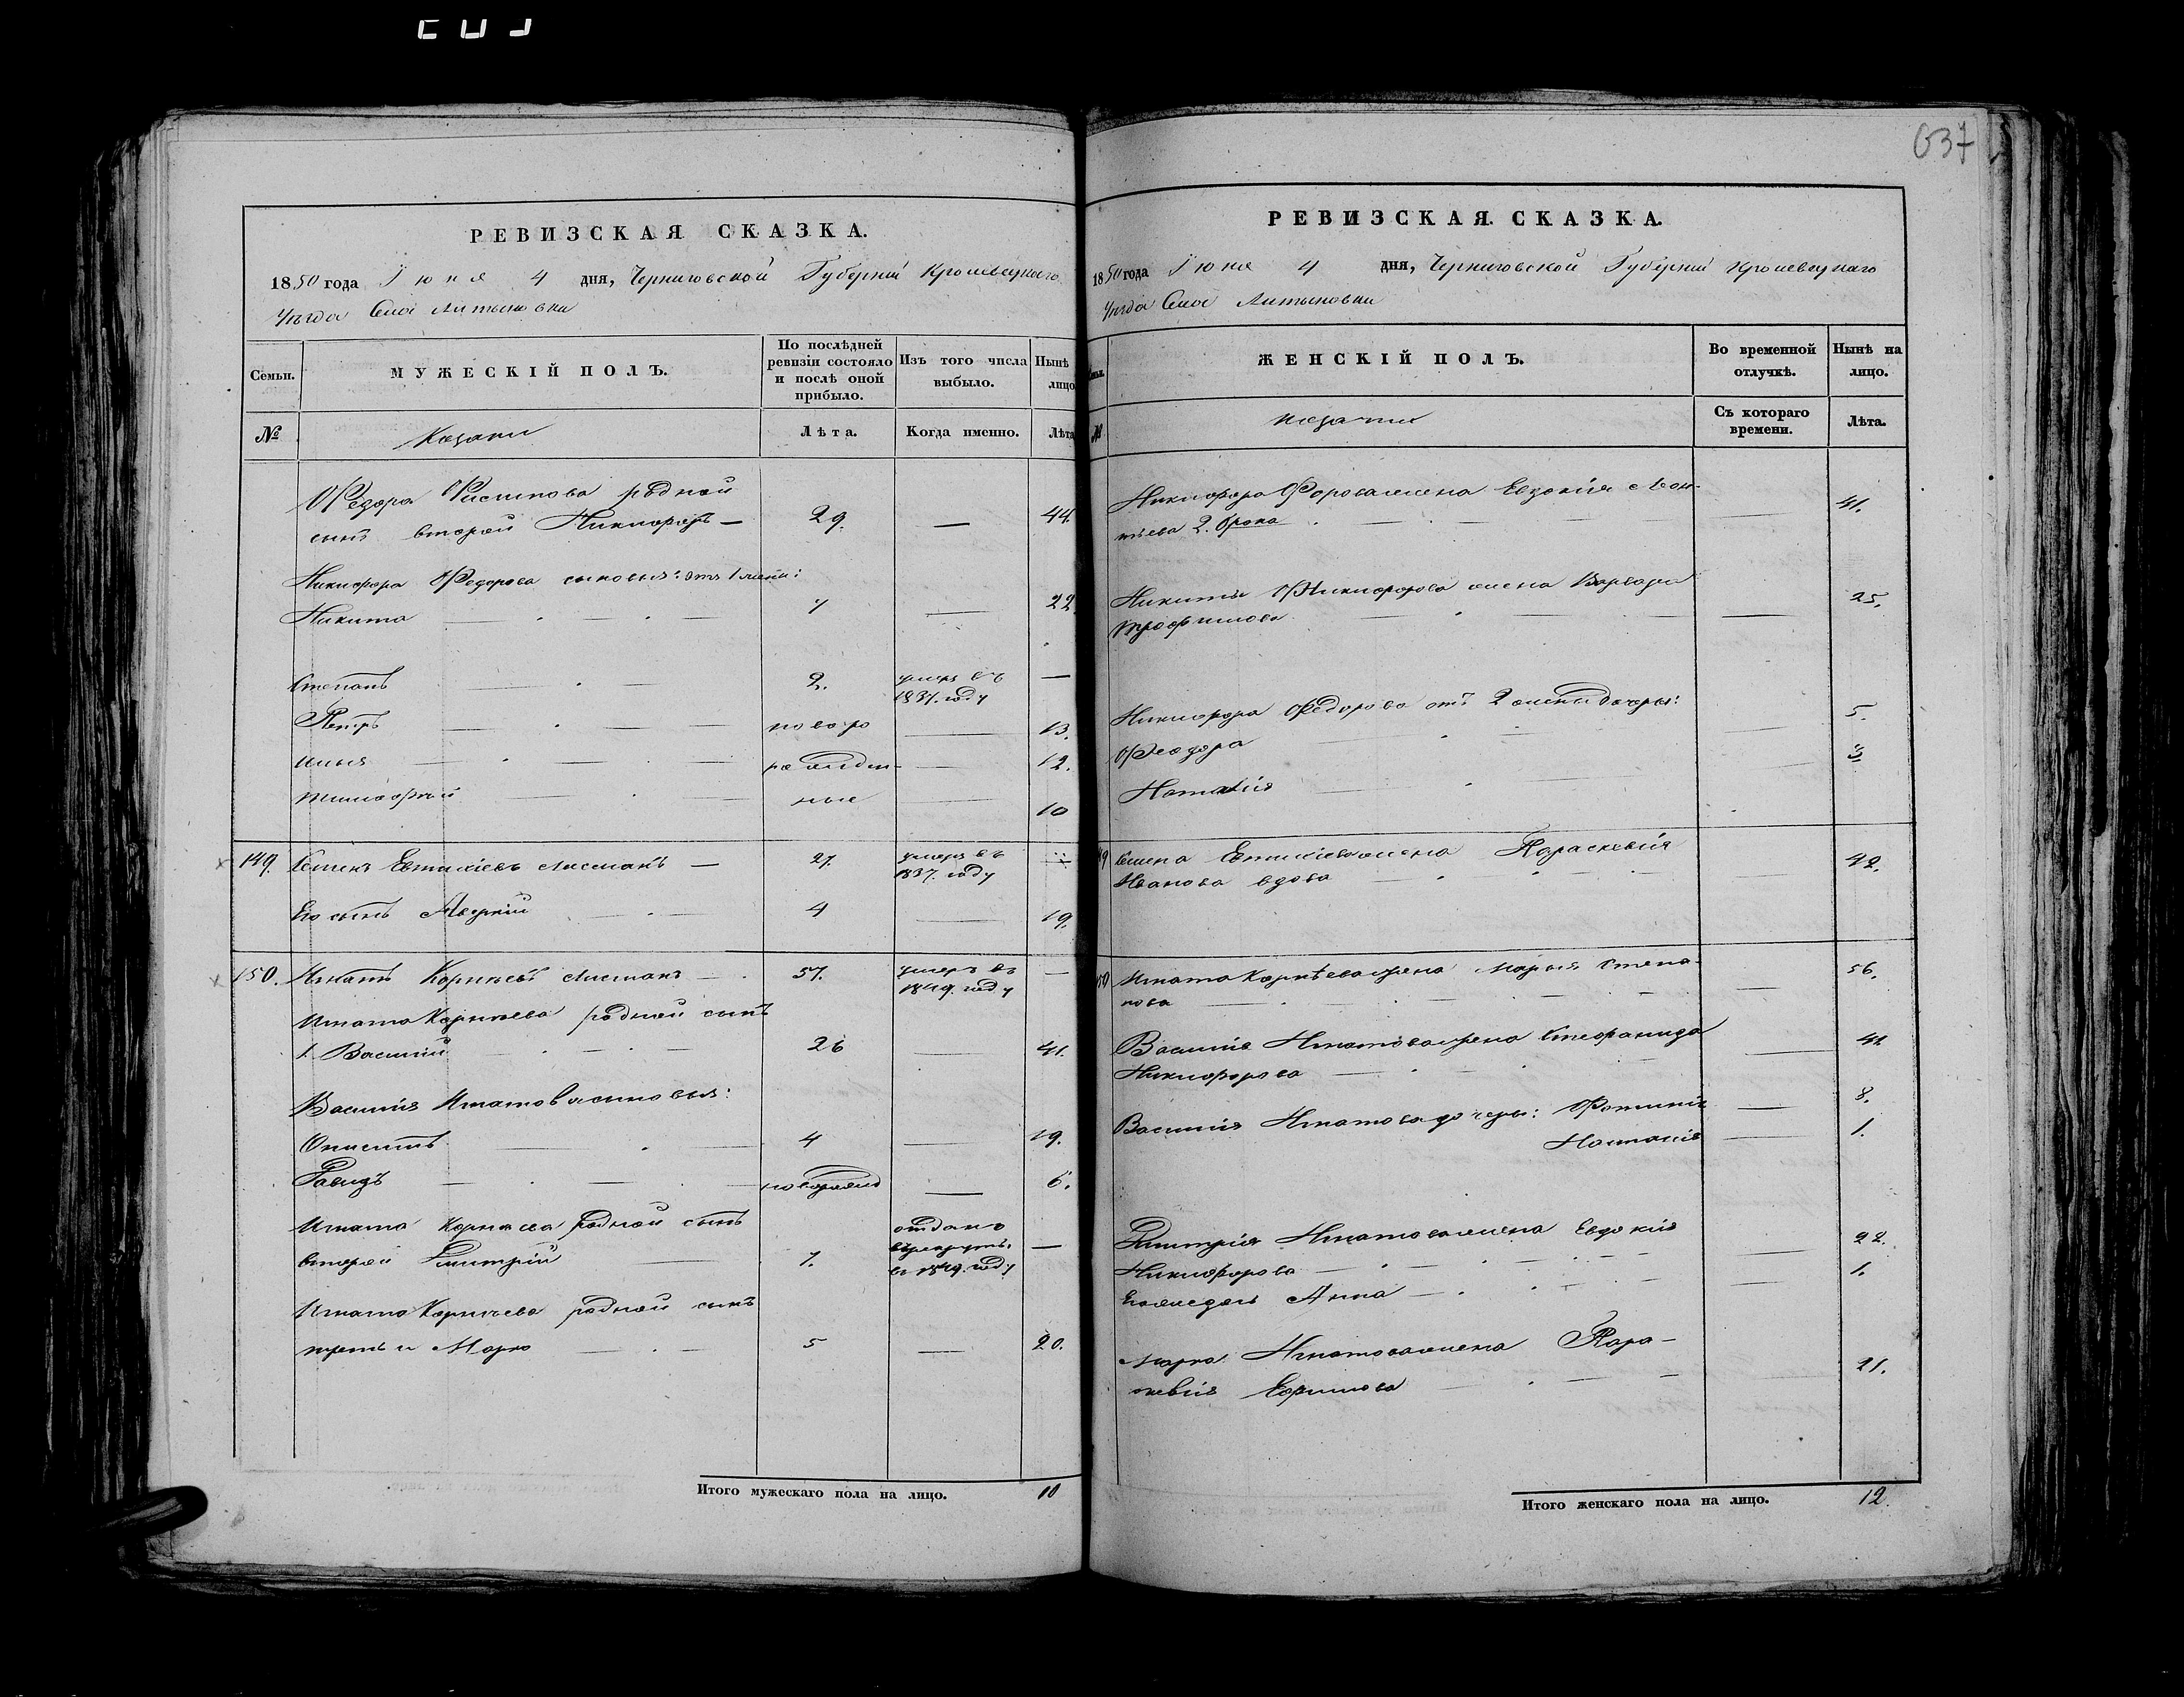 637
РЕВИЗСКАЯ СКАЗКА.
1850 года Іюня 4 дня, Черниговской Губерніи Кролевецкаго
Уѣзда Села Литвиновки
Семьи.
МУЖЕСКІЙ ПОЛЪ.
По послѣдней ревизіи состояло и послѣ оной прибыло.
Изъ того числа выбыло.
Нынѣ лицо
№
Козаки
Лѣта.
Когда именно.
Лѣта
Федора родной
сынъ второй Никифоръ — 29. — 44.
Никифора Федорова сыновья: отъ 1 жены:
Никита 7 — 22
Степанъ 2. умеръ въ 1837. году —
Петръ новоро — 13.
Илья рожден- — 12.
Тимофѣй ные — 10
149. Семенъ Евтихіевъ Лисманъ — 27. умеръ въ 1837. году —
Его сынъ Аверкій 4 — 19.
150. Игнатъ Корнѣевъ Лисманъ — 57. умеръ въ 1849. году —
Игната Корнѣева родной сынъ
1. Василій 26 — 41.
Василія Игнатова сыновья:
Онисимъ 4 — 19.
Давидъ новорожд — 6.
Игната Корнѣева родной сынъ
второй Дмитрій 7. отданъ въ рекруты въ 1849. году —
Игната Корнѣева родной сынъ
третьи Марко 5 — 20.
Итого мужескаго пола на лицо. 10
РЕВИЗСКАЯ СКАЗКА.
1850 года Іюня 4 дня, Черниговской Губерніи Кролевецкаго
Уѣзда Села Литвиновки
ЖЕНСКІЙ ПОЛЪ.
Во временной отлучкѣ.
Нынѣ на лицо.
№
Козачки
Съ котораго времени.
Лѣта.
Никифора жена Евдокія Леон-
тьева 2. брака — 41.
Никиты Никифорова жена Варвара
Трофимова — 25.
Никифора Федорова отъ 2 жены дочери:
Феодора — 5.
Наталія 3
149 Семена Евтихіева жена Параскевія
Иванова вдова 42.
150 Игната Корнѣева жена Марья Степа-
нова — 56.
Василія Игнатова жена Стефанида
Никифорова — 41
Василія Игнатова дочери: Фотинія — 8.
Наталія — 1.
Дмитрія Игнатова жена Евдокія
Никифорова — 22.
Его же дочь Анна — 1.
Марка Игнатова жена Пара-
скевія Ефимова — 21.
Итого женскаго пола на лицо. 12.